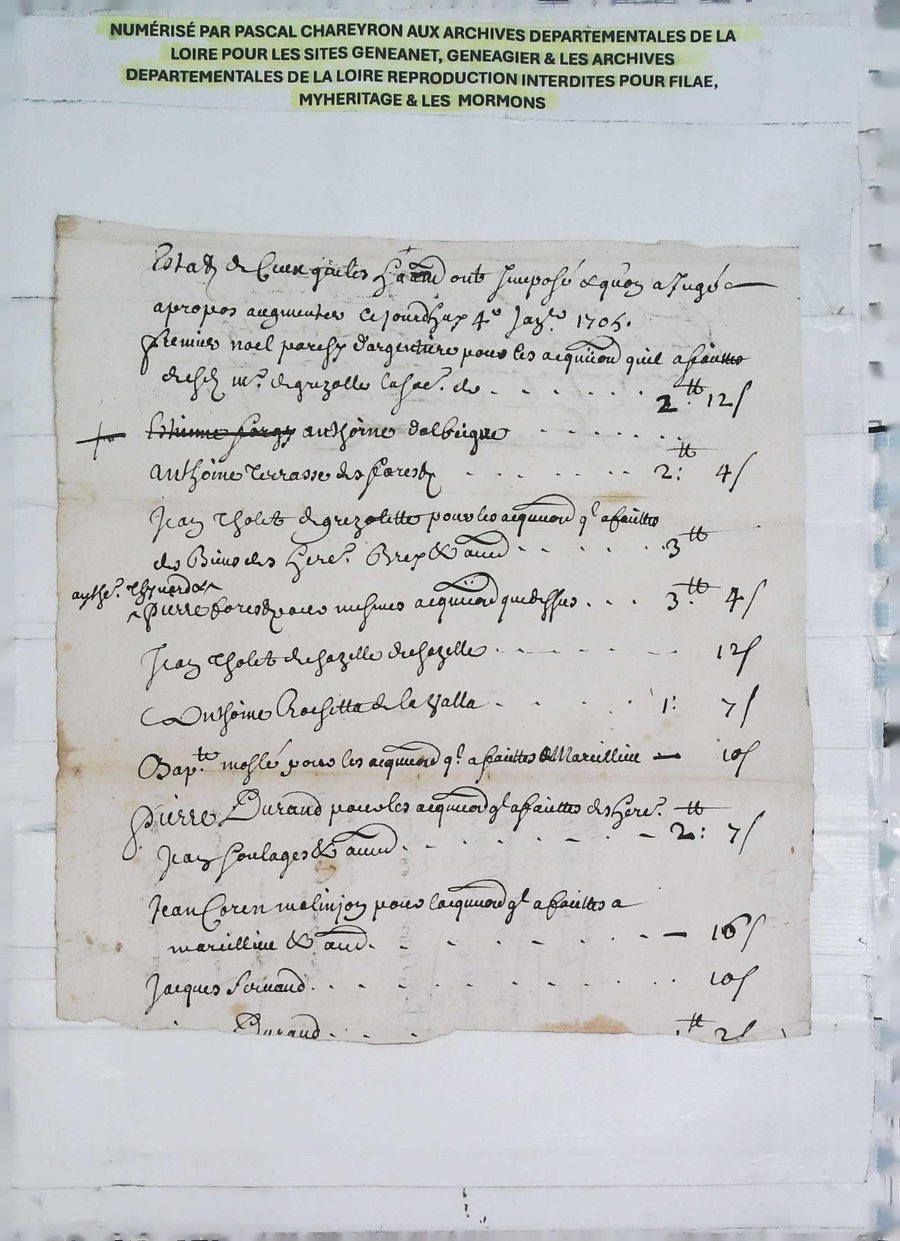 NUMÉRISÉ PAR PASCAL CHAREYRON AUX ARCHIVES DEPARTEMENTALES DE LA
LOIRE POUR LES SITES GENEANET, GENEAGIER & LES ARCHIVES
DEPARTEMENTALES DE LA LOIRE REPRODUCTION INTERDITES POUR FILAE,
MYHERITAGE & LES MORMONS
Estat de Ceux qui les ont Imposé & quon a Jugé
apropos augmenter ce jourdhuy 4e Janr 1705.
Premier noel d'argentiere pour les acquiōnd quil a faittes
de grezolle 2tt 12s
Estienne forgy anthoine dalbeigue
anthoine terrasse des forests 2tt: 4s
Jean tholet de grezolette pour les acquiōnd ql a faittes
des Biens des herer & aud 3tt
anthe.
pierre pour mesmes acquiōnd que dessus 3tt 4s
Jean tholet de chazelle 12s
Anthoine Rochette de la Valla 1: 7s
Bapte pour les acquiōnd ql a faittes de Marcillieu — 10s
pierre Durand pour les acquiōnd ql a faittes des herer
Jean Coulages & aud 2tt: 7s
Jean Coren molinjon pour lacquiōnd ql a faittes a
marcillieu & aud. — 16s
Jacques 10s
Durand tt 2s